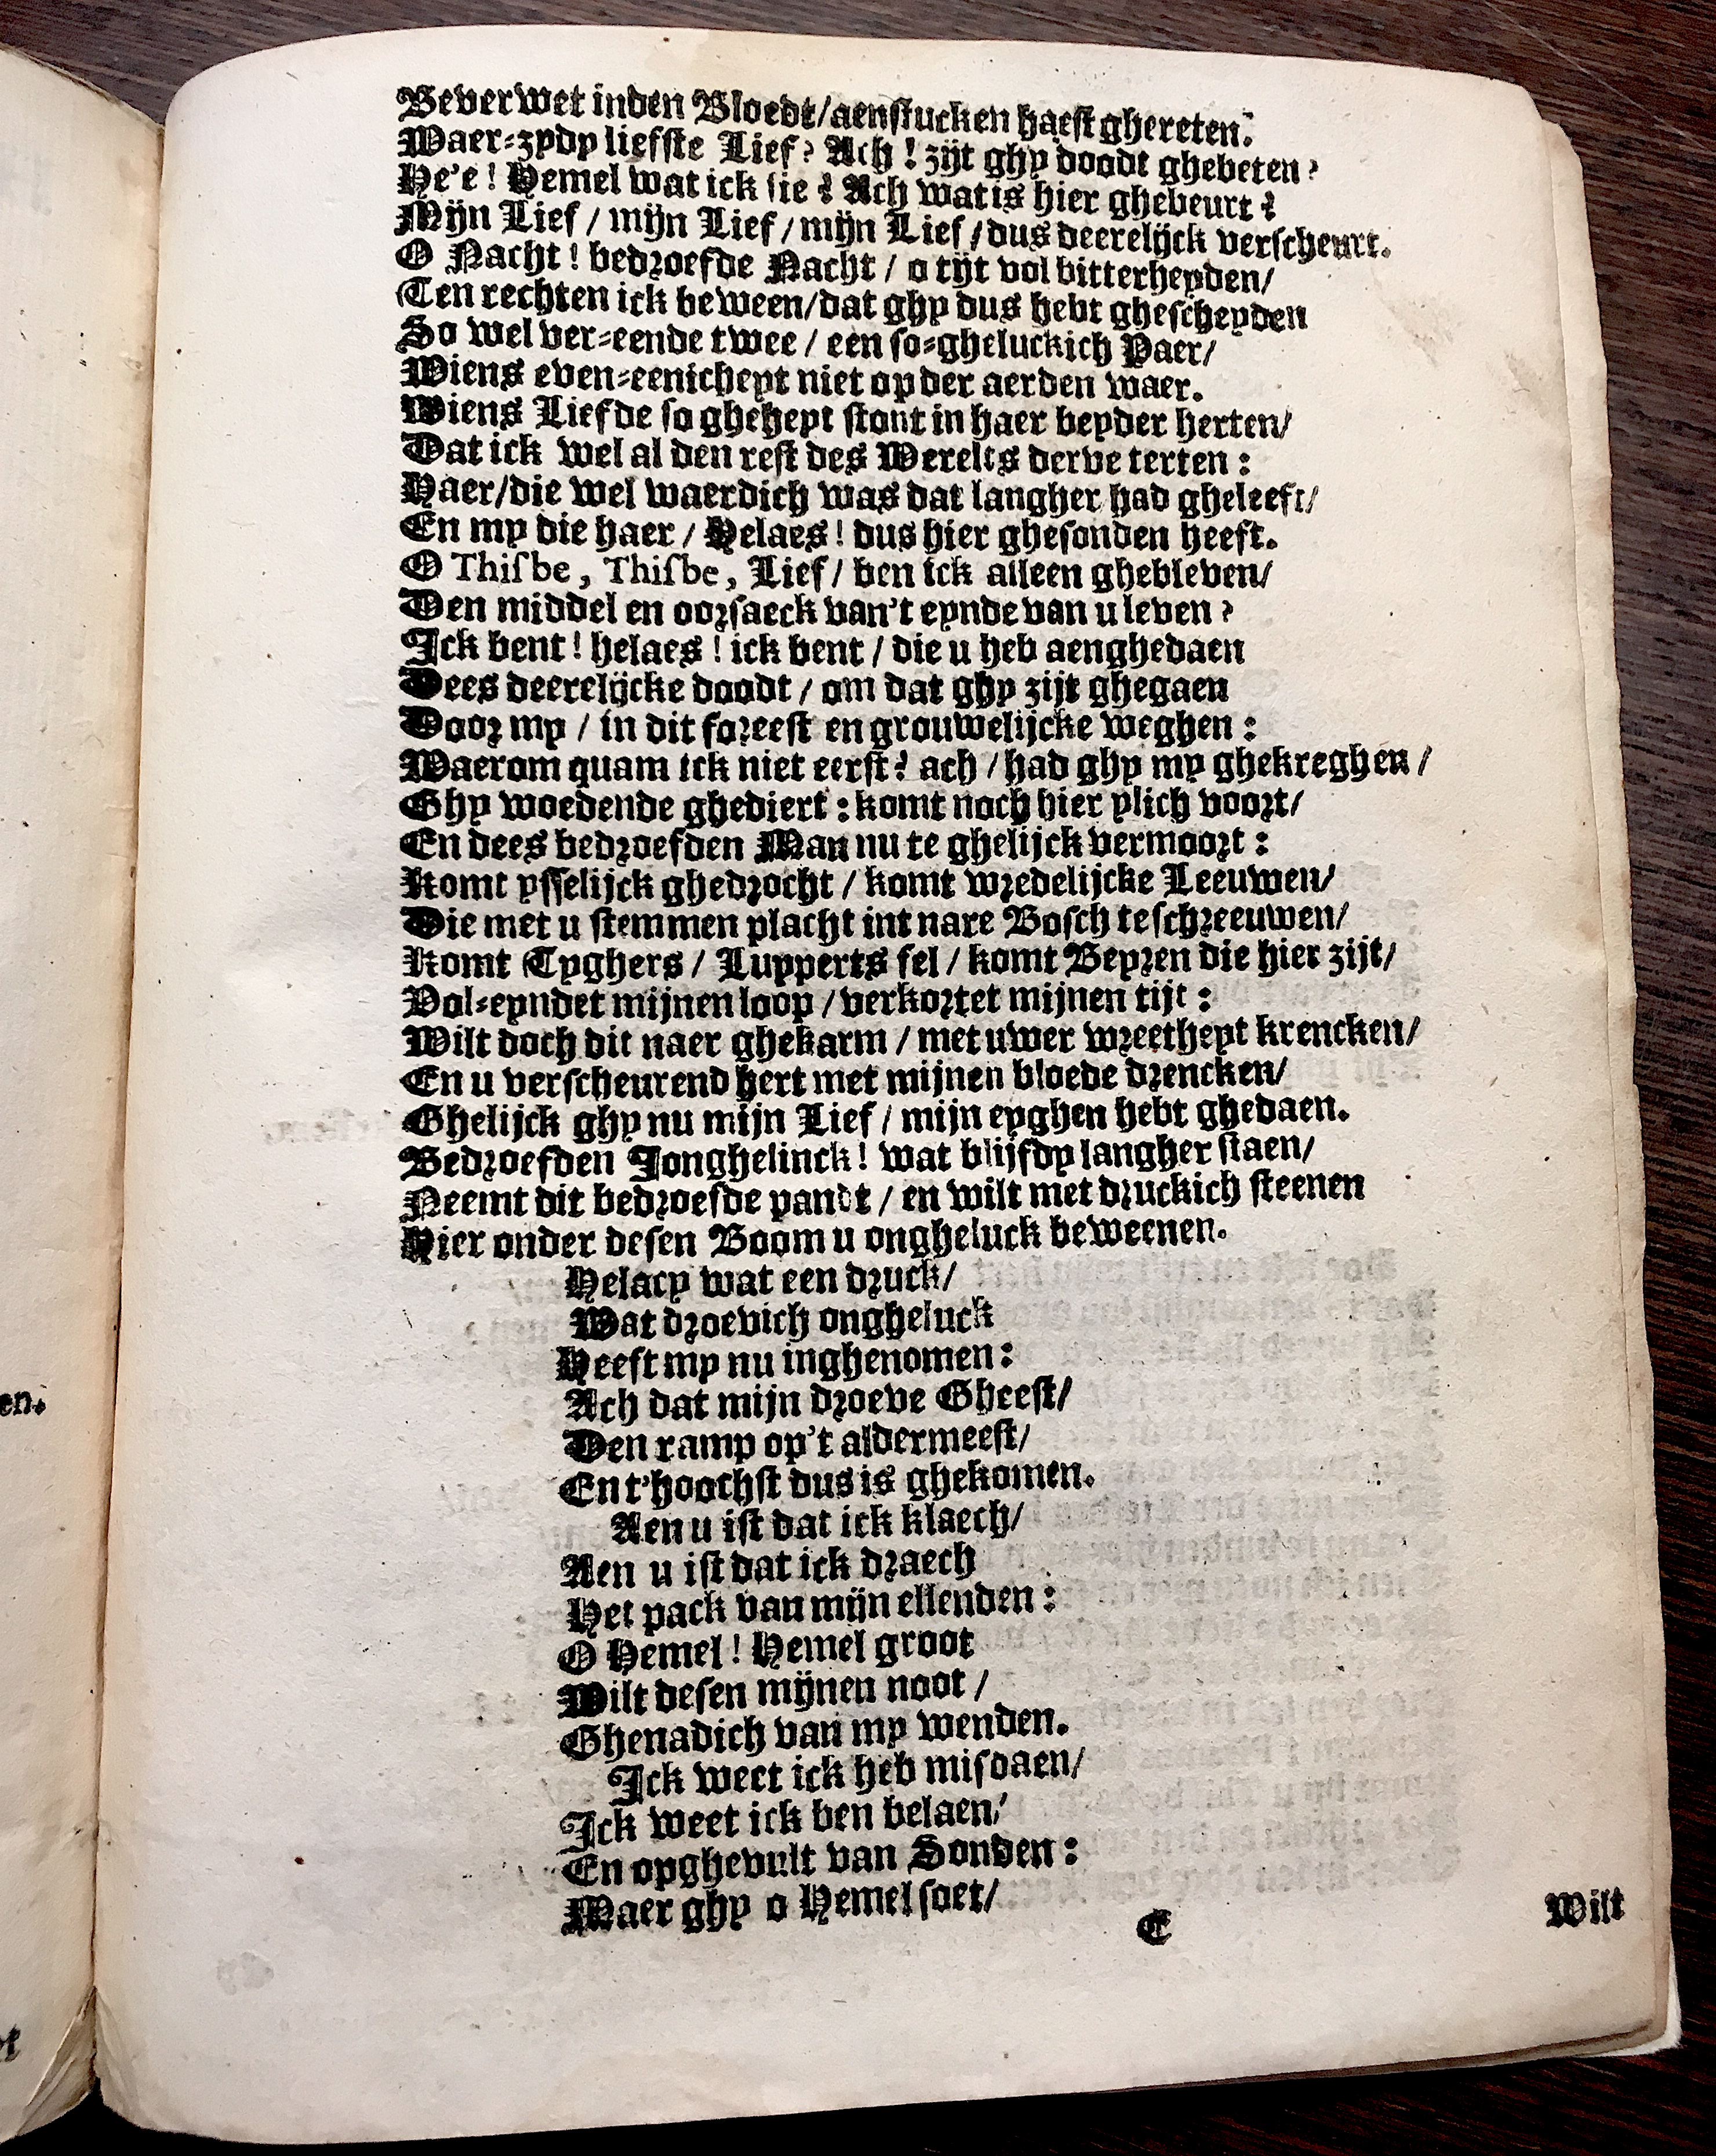 Beverwet inden Bloedt/aenstucken haest ghereten.
Waer-zydy liefste Lief? Ach! zijt ghy doodt ghebeten?
He'e! Hemel wat ick sie? Ach wat is hier ghebeurt?
Mijn Lief / mijn Lief / mijn Lief / dus deerelijck verscheurt.
O Nacht! bedroefde Nacht / o tijt vol bitterheyden/
Ten rechten ick beween/dat ghy dus hebt ghescheyden
So wel ver-eende twee / een so-gheluckich Paer/
Wiens even-eenicheyt niet op der aerden waer.
Wiens Liefde so ghehept stont in haer beyder herten/
Dat ick wel al den rest des Werelts derve terten:
Haer/die wel waerdich was dat langher had gheleeft/
En my die haer / Helaes! dus hier ghesonden heeft.
O Thisbe, Thisbe, Lief/ ben ick alleen ghebleven/
Den middel en oorsaeck van't eynde van u leven?
Ick bent! helaes! ick bent / die u heb aenghedaen
Dees deerelijcke doodt / om dat ghy zijt ghegaen
Door my / in dit foreest en grouwelijcke weghen:
Waerom quam ick niet eerst? ach / had ghy my ghekreghen /
Ghy woedende ghediert: komt noch hier ylich voort/
En dees bedroefden Man nu te ghelijck vermoort:
Komt ysselijck ghedrocht / komt wredelijcke Leeuwen/
Die met u stemmen placht int nare Bosch te schreeuwen/
Komt Tyghers / Lupperts fel / komt Beyren die hier zijt/
Vol-eyndet mijnen loop / verkortet mijnen tijt:
Wilt doch dit naer ghekarm / met uwer wreetheyt krencken/
En u verscheurend hert met mijnen bloede drencken/
Ghelijck ghy nu mijn Lief / mijn eyghen hebt ghedaen.
Bedroefden Jonghelinck! wat blijfdy langher staen/
Neemt dit bedroefde pandt / en wilt met druckich steenen
Hier onder desen Boom u ongheluck beweenen.
Helacy wat een druck/
Wat droevich ongheluck
Heeft my nu inghenomen:
Ach dat mijn droeve Gheest/
Den ramp op't aldermeest/
En t'hoochst dus is ghekomen.
Aen u ist dat ick klaech/
Aen u ist dat ick draech
Het pack van mijn ellenden:
O Hemel! Hemel groot
Wilt desen mijnen noot /
Ghenadich van my wenden.
Ick weet ick heb misdaen/
Ick weet ick ben belaen/
En opghevult van Sonden:
Maer ghy o Hemel soet/
C Wilt